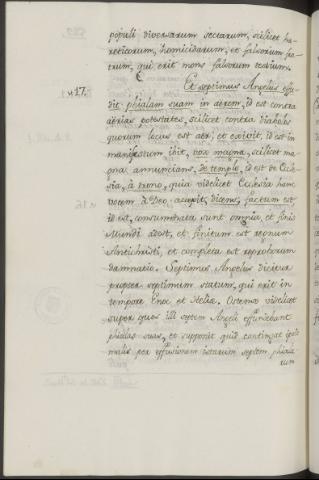 populi diversarum sectarum, scilicet hæ-
reticorum, homicidarum, et falsorum fra-
trum, qui erit mons falsorum testium.
v. 17. Et septimus Angelus effu-
dit phialam suam in aërem, id est contra
aërias potestates, scilicet contra diabolos
quorum locus est aër, et exivit, id est in
manifestum ibit, vox magna, scilicet ma-
gna annuncians, de templo, id est de Eccle-
sia, à throno, quia videlicet Ecclesia hanc
vocem à Deo accepit, dicens, factum est
id est, consummata sunt omnia, et finis
Mundi adest, et finitum est regnum
Antichristi, et completa est reproborum
damnatio. Septimus Angelus dicitur
propter septimum statum, qui erit in
tempore Enoc et Helia. Ostenso videlicet
super quos illi septem Angeli effunderunt
phialas suas, et supponit quid contingat ipsis
malis per effusionem istarum septem phiala-
rum